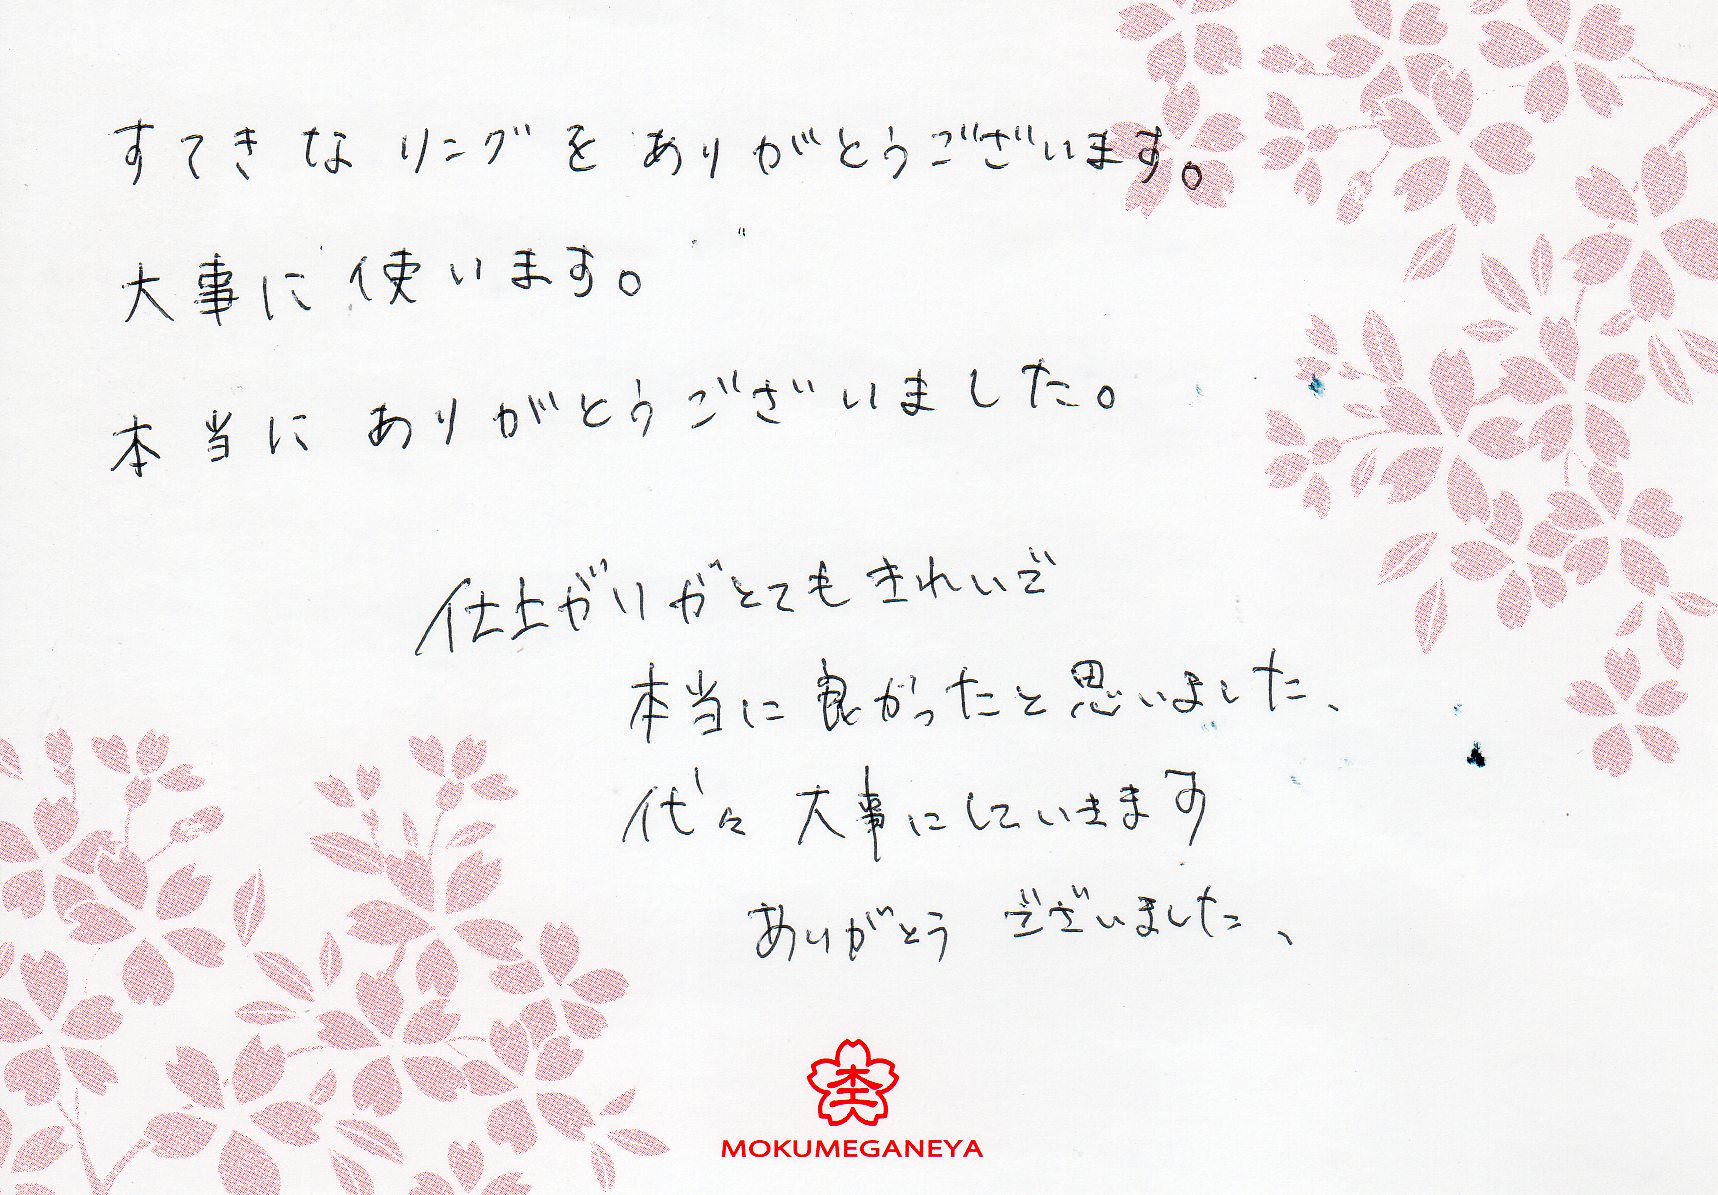 すてきなリングをありがとうございます。
大事に使います。
本当にありがとうございました。
仕上がりがとてもきれいで
本当に良かったと思いました、
代々大事にしていきます
ありがとうございました、
MOKUMEGANEYA